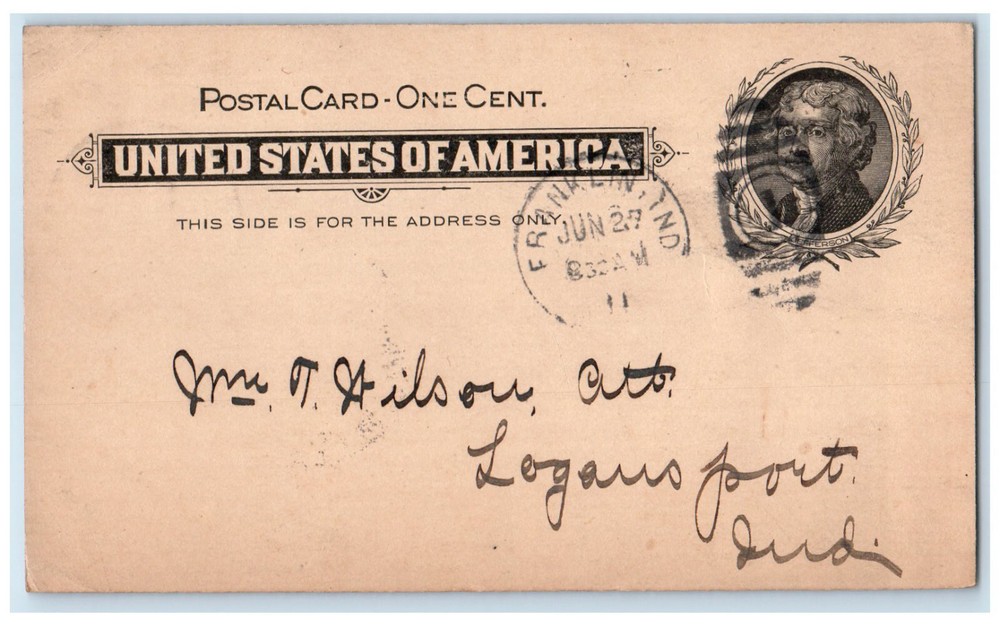 POSTAL CARD - ONE CENT.
UNITED STATES OF AMERICA.
THIS SIDE IS FOR THE ADDRESS ONLY.
FRANKLIN, IND
JUN 27
830AM
JEFFERSON
Wm. T. Wilson, Att.
Logansport.
Ind.